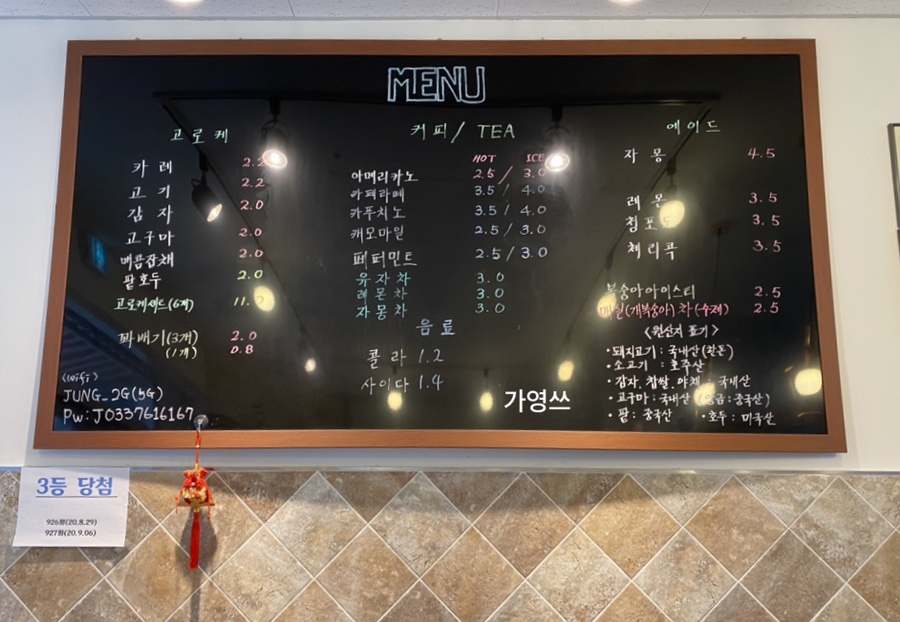 MENU
고로케
카레 2.2
고기 2.2
감자 2.0
고구마 2.0
매콤잡채 2.0
팥호두 2.0
고로케세트(6개)
꽈배기(3개) 2.0
(1개) 0.8
<wifi>
JUNG_2G(5G)
Pw: J0337616167
커피/ TEA
HOT ICE
아메리카노 2.5 / 3.0
카페라떼 3.5 / 4.0
카푸치노 3.5 / 4.0
캐모마일 2.5 / 3.0
페퍼민트 2.5 / 3.0
유자차 3.0
레몬차 3.0
자몽차 3.0
음료
콜라 1.2
사이다 1.4
에이드
자몽 4.5
레몬 3.5
청포도 3.5
체리콕 3.5
복숭아아이스티 2.5
매실(개복숭아)차(수제) 2.5
<원산지 표기>
·돼지고기 : 국내산(한돈)
·소고기 : 호주산
·감자.찹쌀.야채 : 국내산
·고구마 : 국내산 (앙금:중국산)
·팥 : 중국산 ·호두 : 미국산
가영쓰
3등 당첨
926회(20.8.29)
927회(20.9.06)